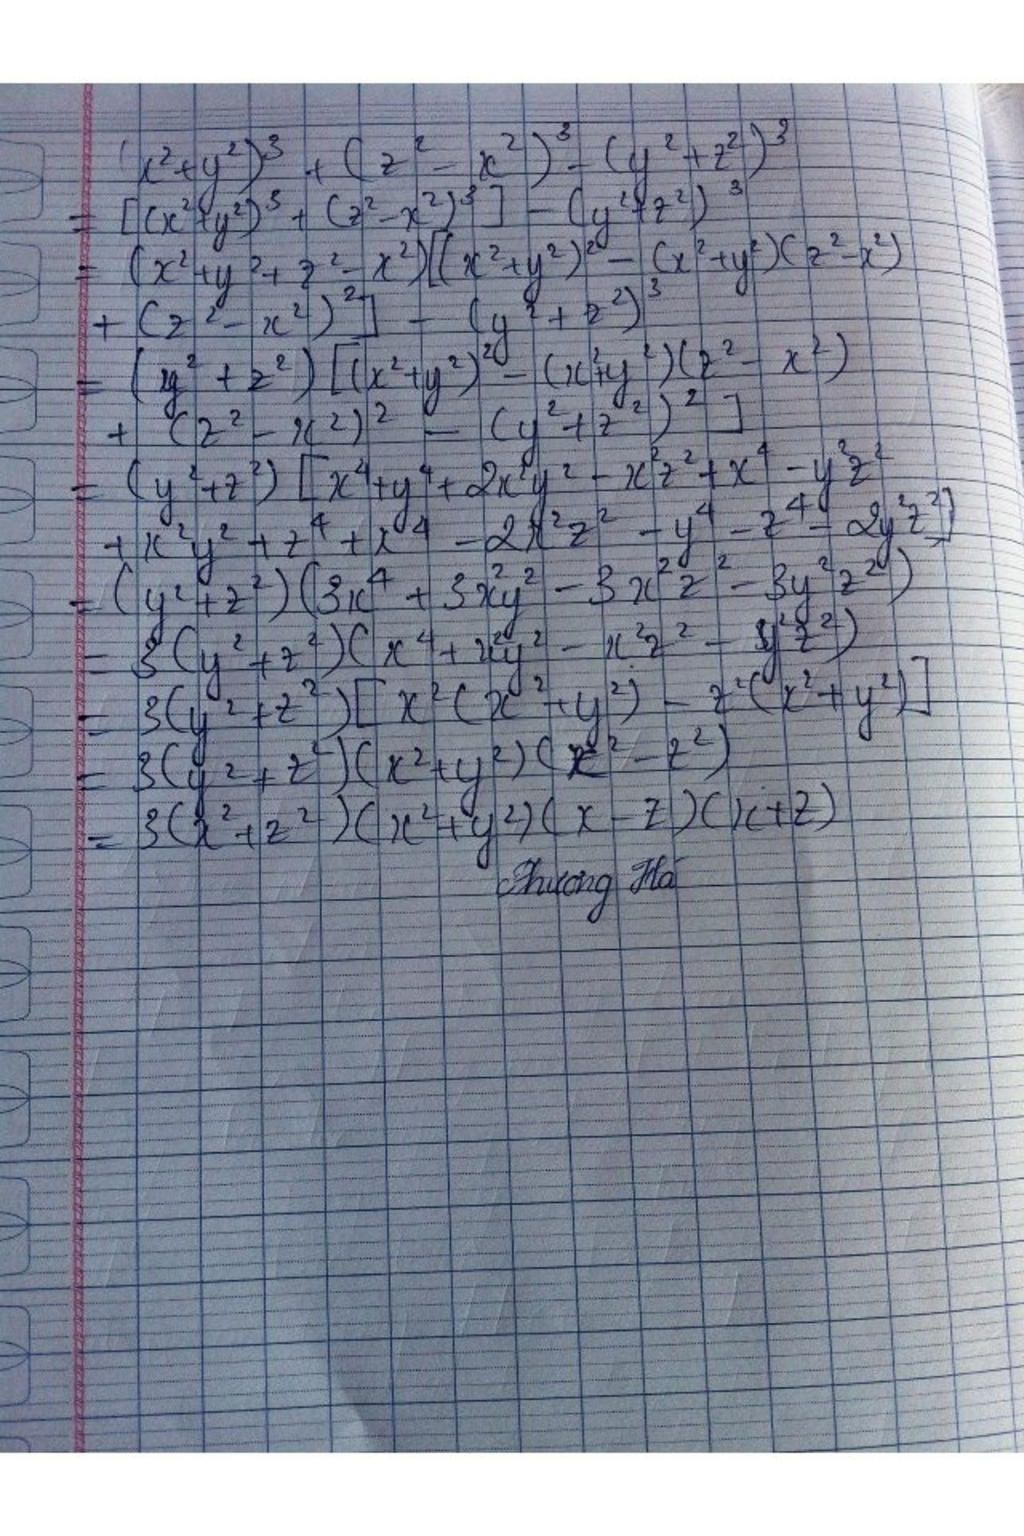 (x²+y²)³ + (z² - x²)³ - (y²+z²)³
= [(x²+y²)³ + (z²-x²)³] - (y²+z²)³
= (x²+y²+z²-x²)[(x²+y²)² - (x²+y²)(z²-x²)
+ (z²-x²)²] - (y²+z²)³
= (y²+z²)[(x²+y²)² - (x²+y²)(z²-x²)
+ (z²-x²)² - (y²+z²)²]
= (y²+z²)[x⁴+y⁴+2x²y² - x²z²+x⁴-y²z²
+x²y²+z⁴+x⁴-2x²z²-y⁴-z⁴-2y²z²]
= (y²+z²)(3x⁴+3x²y²-3x²z²-3y²z²)
= 3(y²+z²)(x⁴+x²y²-x²z²-y²z²)
= 3(y²+z²)[x²(x²+y²)-z²(x²+y²)]
= 3(y²+z²)(x²+y²)(x²-z²)
= 3(x²+z²)(x²+y²)(x-z)(x+z)
Phương Hà